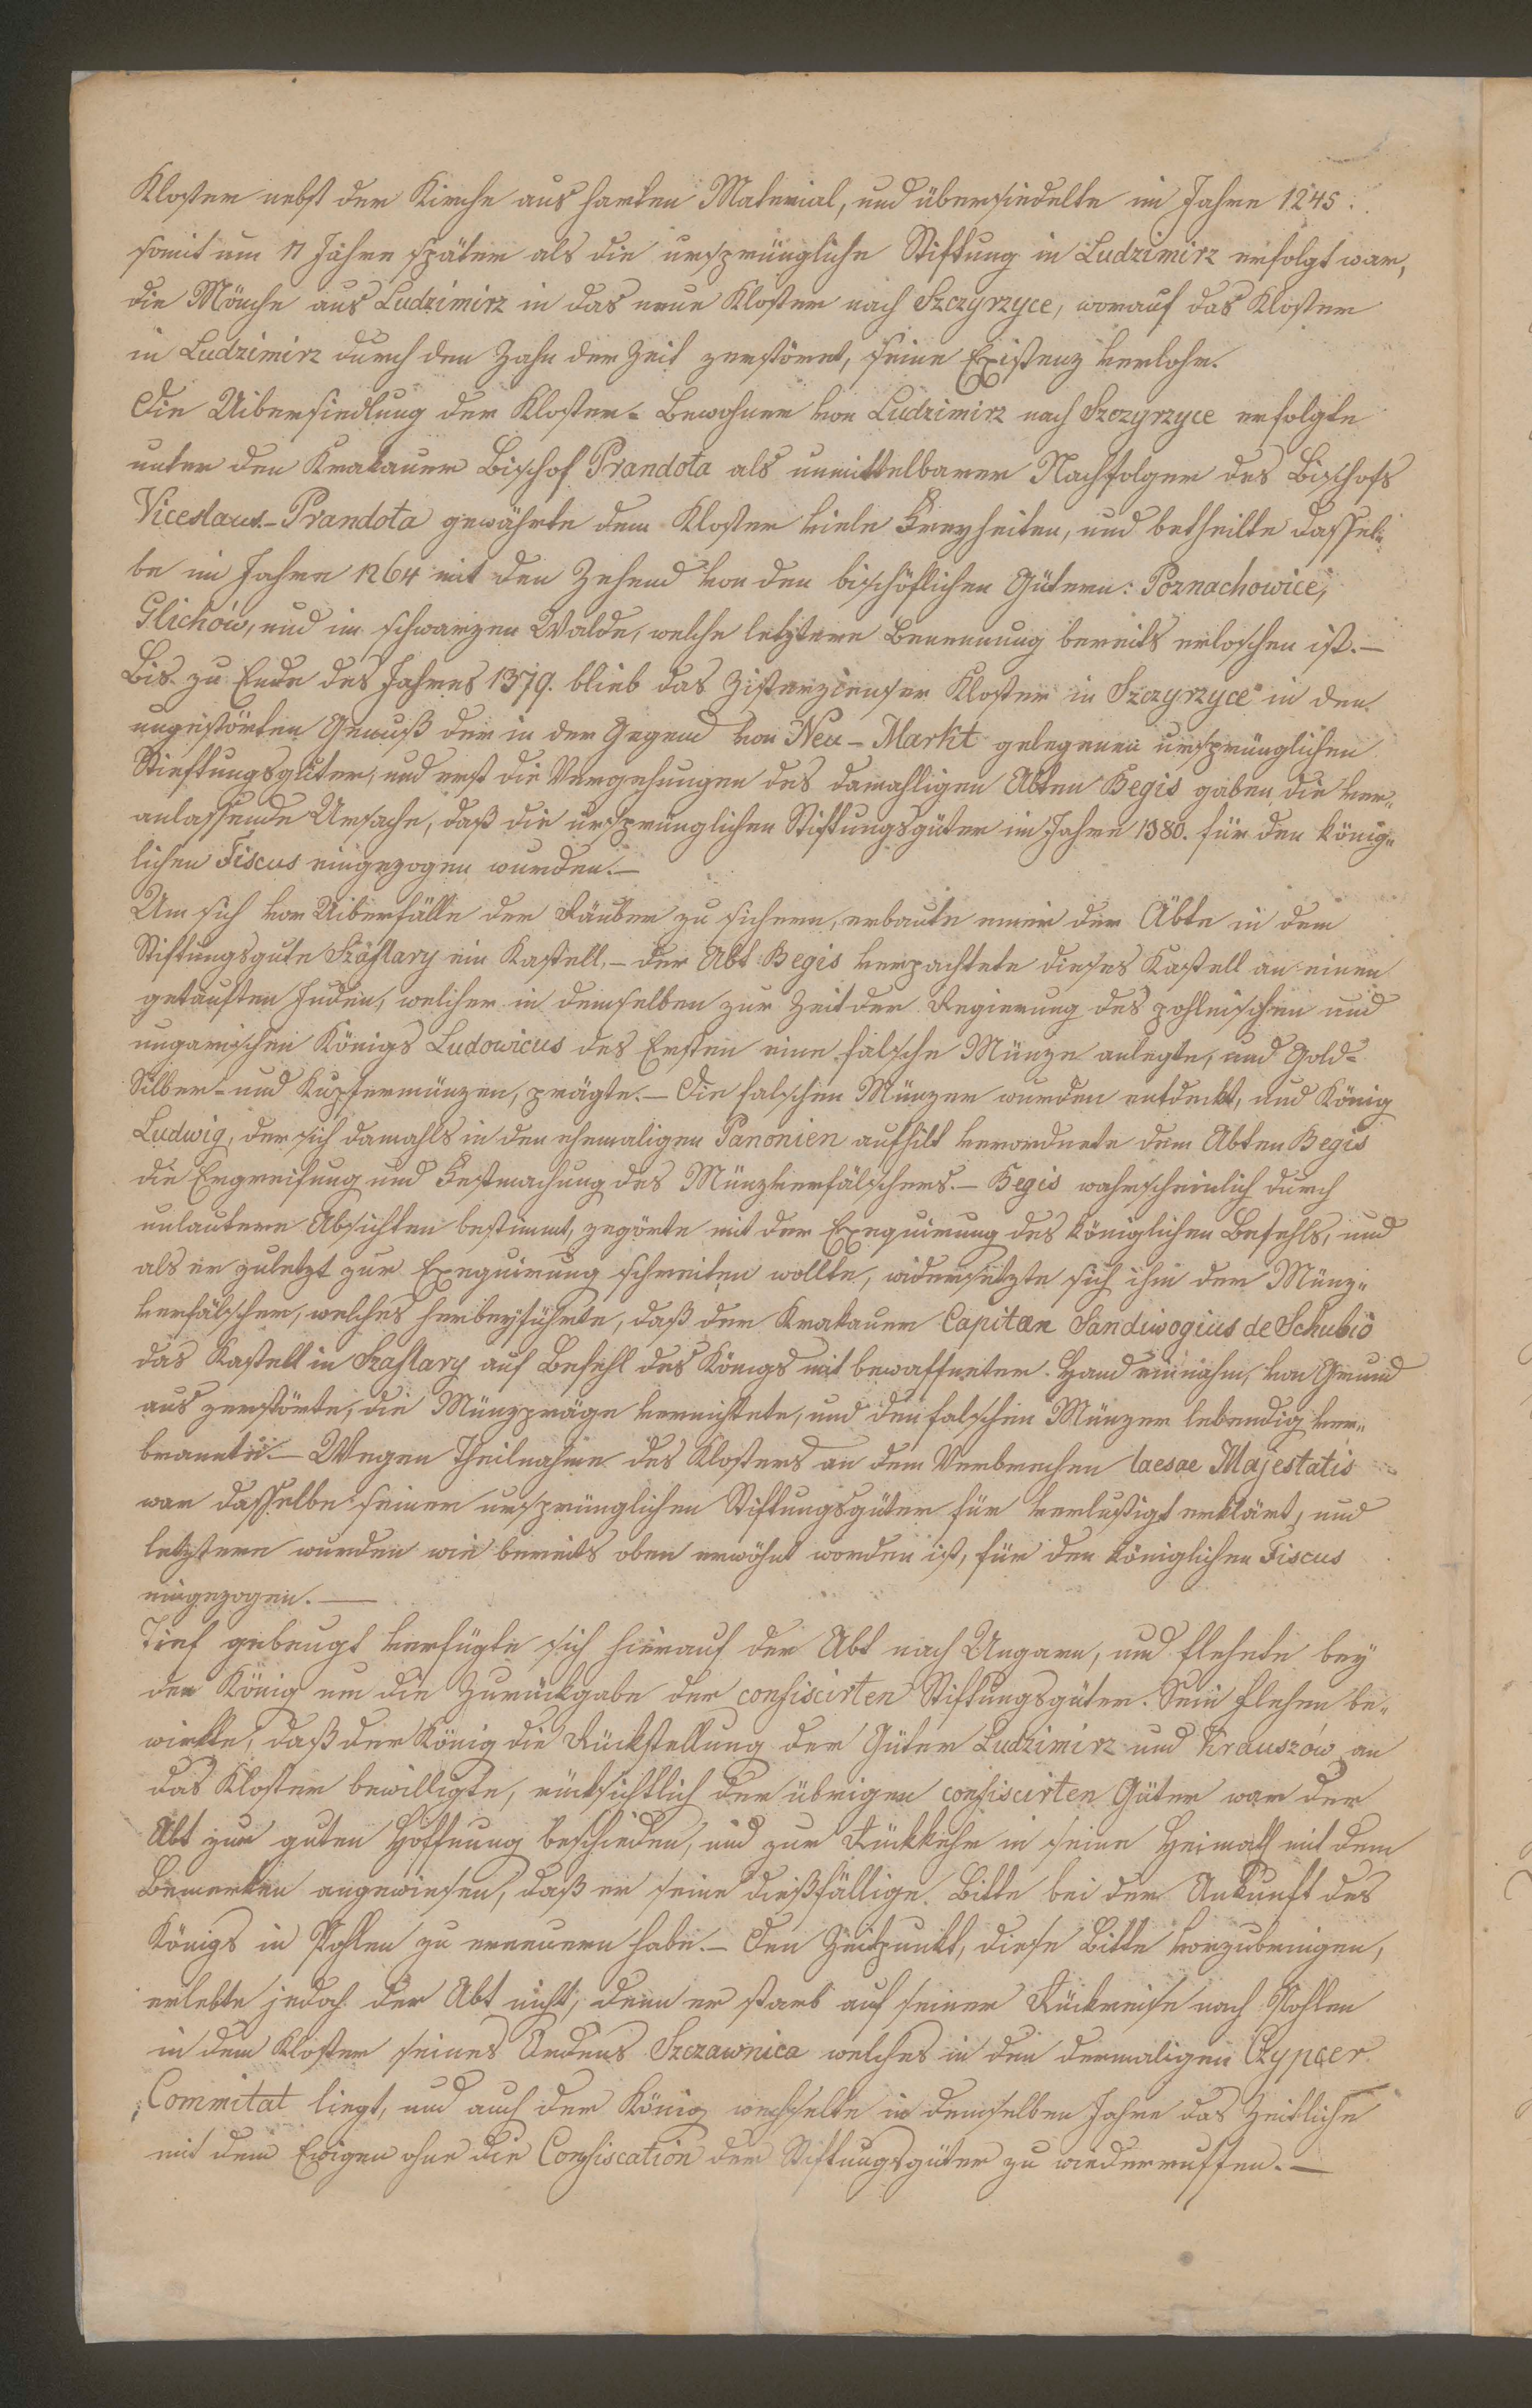 Kloster nebst der Kirche aus harten Material, und übersiedelte im Jahre 1245.
somit um 11 Jahre später als die ursprüngliche Stiftung in Ludzimirz erfolgt war,
die Mönche aus Ludzimirz in das neue Kloster nach Szczyrzyce, worauf das Kloster
in Ludzimirz durch den Zahn der Zeit zerstöret, seine Existenz verlohr.
Die Uibersiedlung der Kloster-Bewohner von Ludzimirz nach Szczyrzyce erfolgte
unter den Krakauer Bischof Prandota als unmittelbarer Nachfolger des Bischofs
Viceslaus.- Prandota gewährte dem Kloster viele Freyheiten, und betheilte dassel„
be im Jahre 1264 mit den Zehend von den bischöflichen Gütern: Poznachowice,
Glichów, und im schwarzen Walde, welche letztere Benennung bereits erloschen ist.—
Bis zu Ende des Jahres 1379. blieb das Zisterzienser Kloster in Szczyrzyce in den
ungestörten Genuß der in der Gegend von Neu-Markt gelegenen ursprünglichen
Stieftungsgüter, und erst die Vergehungen des damahligen Abten Begis gaben die ver„
anlassende Ursache, daß die ursprünglichen Stiftungsgüter im Jahre 1380. für den könig„
lichen Fiscus eingezogen wurden.—
Um sich vor Uiberfälle der Räuber zu sichern, erbaute einer der Äbte in dem
Stiftungsgute Szaflary ein Kastell.— der Abt Begis verpachtete dieses Kastell an einen
getauften Juden, welcher in demselben zur Zeit der Regierung des pohlnischen und
ungarischen Königs Ludowicus des Ersten eine falsche Münze anlegte, und Gold-
Silber- und Kupfermünzen, prägte.— Die falschen Münzer wurden entdeckt, und König
Ludwig, der sich damahls in den ehemaligen Panonien aufhilt verordnete dem Abten Begis
die Ergreifung und Festmachung des Münzverfälschers.— Begis wahrscheinlich durch
unlautere Absichten bestimmt, zegörte mit der Exequirung des königlichen Befehls, und
als er zuletzt zur Exequirung schreiten wollte, widersetzte sich ihm der Münz„
verfälscher, welches herbeyführte, daß der Krakauer Capitan Sandiwogius de Schubio
das Kastell in Szaflary auf Befehl des Königs mit bewaffneter Hand einnahm, von Grund
aus zerstörte, die Münzpräge vernichtete, und den falschen Münzer lebendig ver„
brannte.— Wegen Theilnahme des Klosters an dem Verbrechen laesae Majestatis
war dasselbe seiner ursprünglichen Stiftungsgüter für verlustigt erklärt, und
letztere wurden wie bereits oben erwähnt worden ist, für den königlichen Fiscus
eingezogen.—
Tief gebeugt verfügte sich hierauf der Abt nach Ungarn, und flehete bey
den König um die Zurückgabe der confiscirten Stiftungsgüter. Sein Flehen be„
wirkte, daß der König die Rückstellung der Güter Ludzimirz und Krauszów an
das Kloster bewilligte, rücksichtlich der übrigen confiscirten Güter war der
Abt zur guten Hoffnung beschieden, und zur Rückkehr in seine Heimath mit dem
Bemerken angewiesen, daß er seine dießfällige Bitte bei der Ankunft des
Königs in Pohlen zu erneuern habe.— Den Zeitpunkt, diese Bitte vorzubringen,
erlebte jedoch der Abt nicht, denn er starb auf seiner Rückreise nach Pohlen
in dem Kloster seines Ordens Szczawnica welches in den dermaligen Czypser
Commitat liegt, und auch der König wechselte in demselben Jahre das Zeitliche
mit dem Ewigen ohne die Confiscation der Stiftungsgüter zu wiederruffen.—